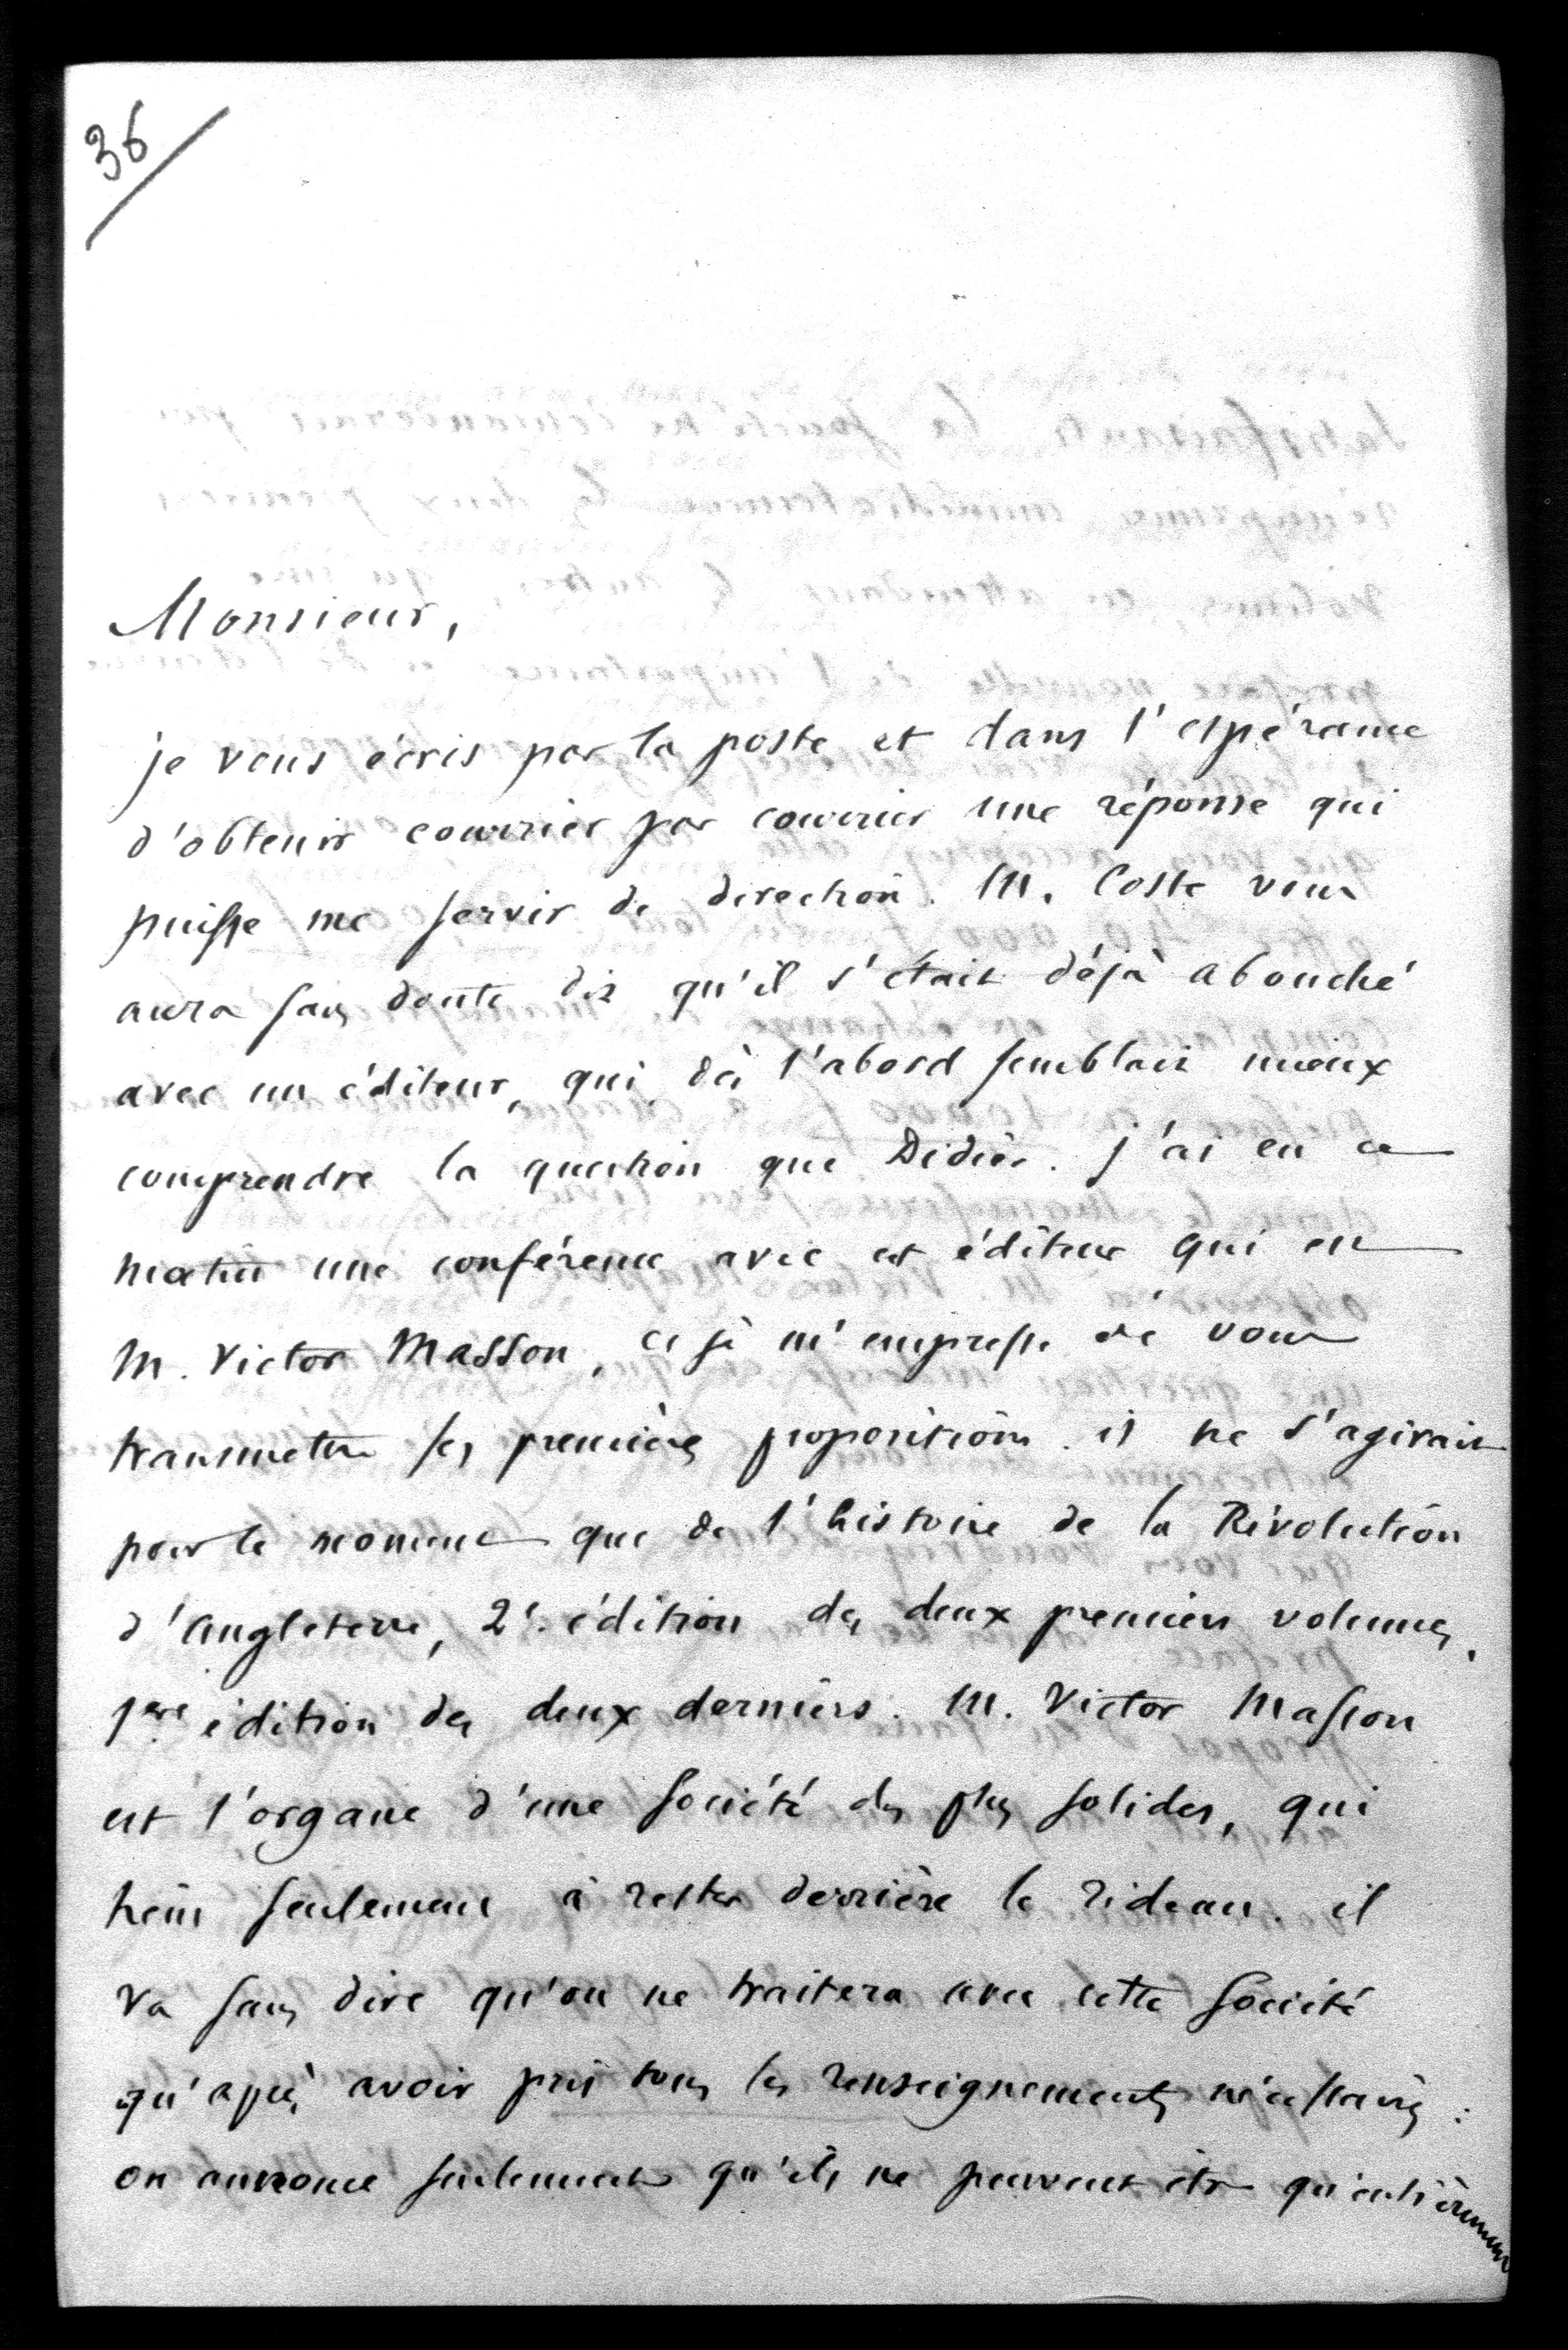 36
Monsieur,
je vous écris par la poste et dans l'espérance
d'obtenir courrier par courrier une réponse qui
puisse me servir de direction. M. Coste vous
aura sans doute dit qu'il s'était déjà abouché
avec un éditeur, qui dès l'abord semblait mieux
comprendre la question que Didier. j'ai eu ce
matin une conférence avec cet éditeur qui est
M. Victor Masson, et je m'empresse de vous
transmettre ses premières propositions. il ne s'agirait
pour le moment que de l'histoire de la Révolution
d'angleterre, 2e. édition des deux premiers volumes,
1ere édition des deux derniers. M. Victor Masson
est l'organe d'une société des plus solides, qui
tient seulement à rester derrière le rideau. il
va sans dire qu'on ne traitera avec cette société
qu'après avoir pris tous les renseignements nécessaires :
on annonce seulement qu'ils ne peuvent être qu'entièrement